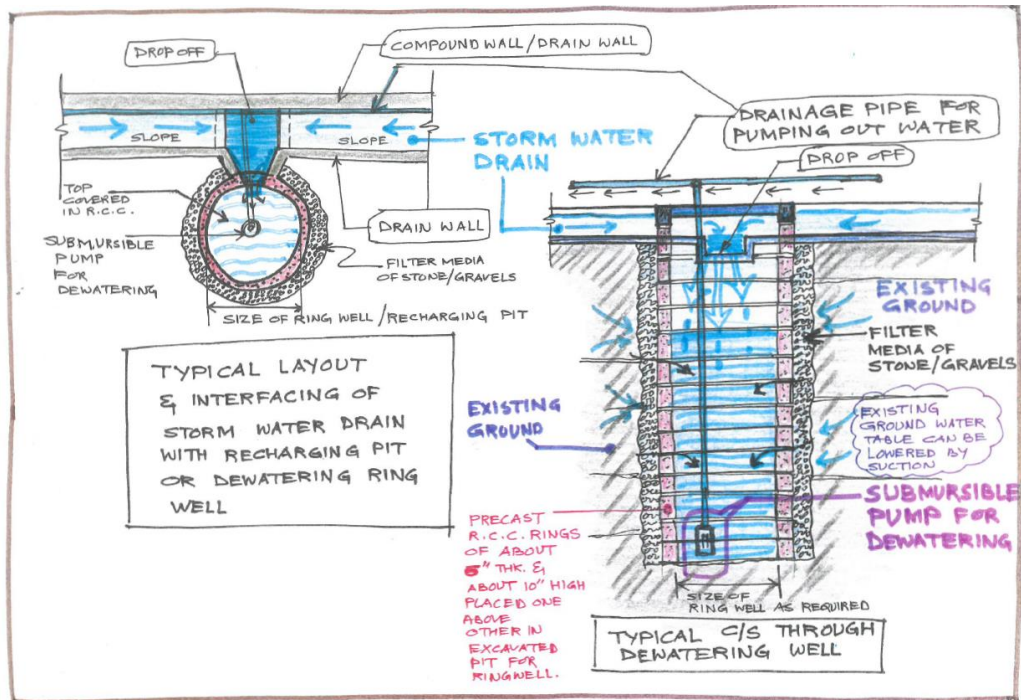 DROP OFF
COMPOUND WALL/DRAIN WALL
SLOPE
SLOPE
STORM WATER
DRAIN
TOP
COVERED
IN R.C.C.
SUBMURSIBLE
PUMP
FOR
DEWATERING
DRAIN WALL
FILTER MEDIA
OF STONE/GRAVELS
SIZE OF RING WELL/RECHARGING PIT
TYPICAL LAYOUT
& INTERFACING OF
STORM WATER DRAIN
WITH RECHARGING PIT
OR DEWATERING RING
WELL
DRAINAGE PIPE FOR
PUMPING OUT WATER
DROP OFF
EXISTING
GROUND
FILTER
MEDIA OF
STONE/GRAVELS
EXISTING
GROUND WATER
TABLE CAN BE
LOWERED BY
SUCTION
EXISTING
GROUND
SUBMURSIBLE
PUMP FOR
DEWATERING
PRECAST
R.C.C. RINGS
OF ABOUT
THK. &
ABOUT 10" HIGH
PLACED ONE
ABOVE
OTHER IN
EXCAVATED
PIT FOR
RINGWELL.
SIZE OF
RING WELL AS REQUIRED
TYPICAL C/S THROUGH
DEWATERING WELL